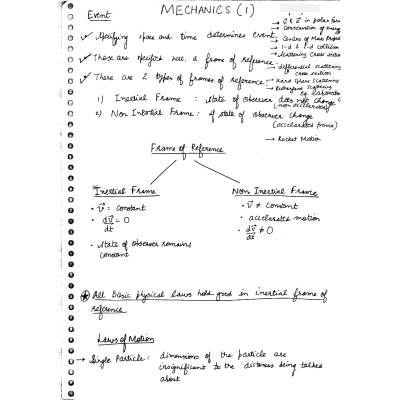 MECHANICS (1)
→ v̄ & ā in polar form
→ Conservation of energy
→ Centre of Mass
→ 1-d & 2-d collision
→ Scattering Cross section
→ differential scattering cross section
→ Hard sphere scattering
→ Rutherford scattering
→ Rocket Motion
Event
✓ Specifying space and time determines event.
✓ These are specified w.r.t. a frame of reference.
✓ There are 2 types of frames of reference.
eg. Laboratory
1) Inertial Frame : state of observer does not change
(non accelerated)
2) Non Inertial Frame : if state of observer change
(accelerated frame)
Frame of Reference
Inertial Frame
• v̄ = constant
• dv̄/dt = 0
• state of observer remains
constant
Non Inertial Frame
• v̄ ≠ constant
• accelerated motion
• dv̄/dt ≠ 0
All Basic physical laws hold good in inertial frame of
reference
Laws of Motion
→ Single Particle : dimensions of the particle are
insignificant to the distances being talked
about